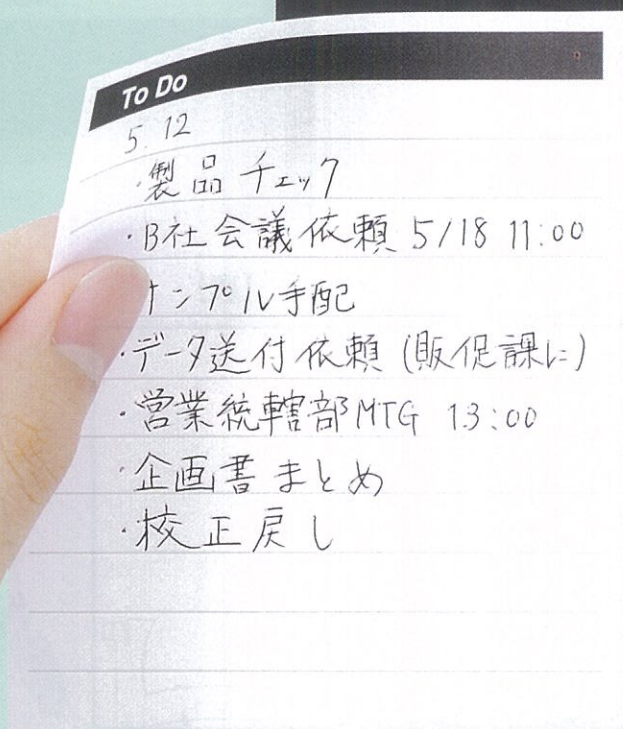 To Do
5.12
・製品チェック
・B社会議依頼 5/18 11:00
サンプル手配
・データ送付依頼 (販促課に)
・営業統轄部MTG 13:00
・企画書まとめ
・校正戻し